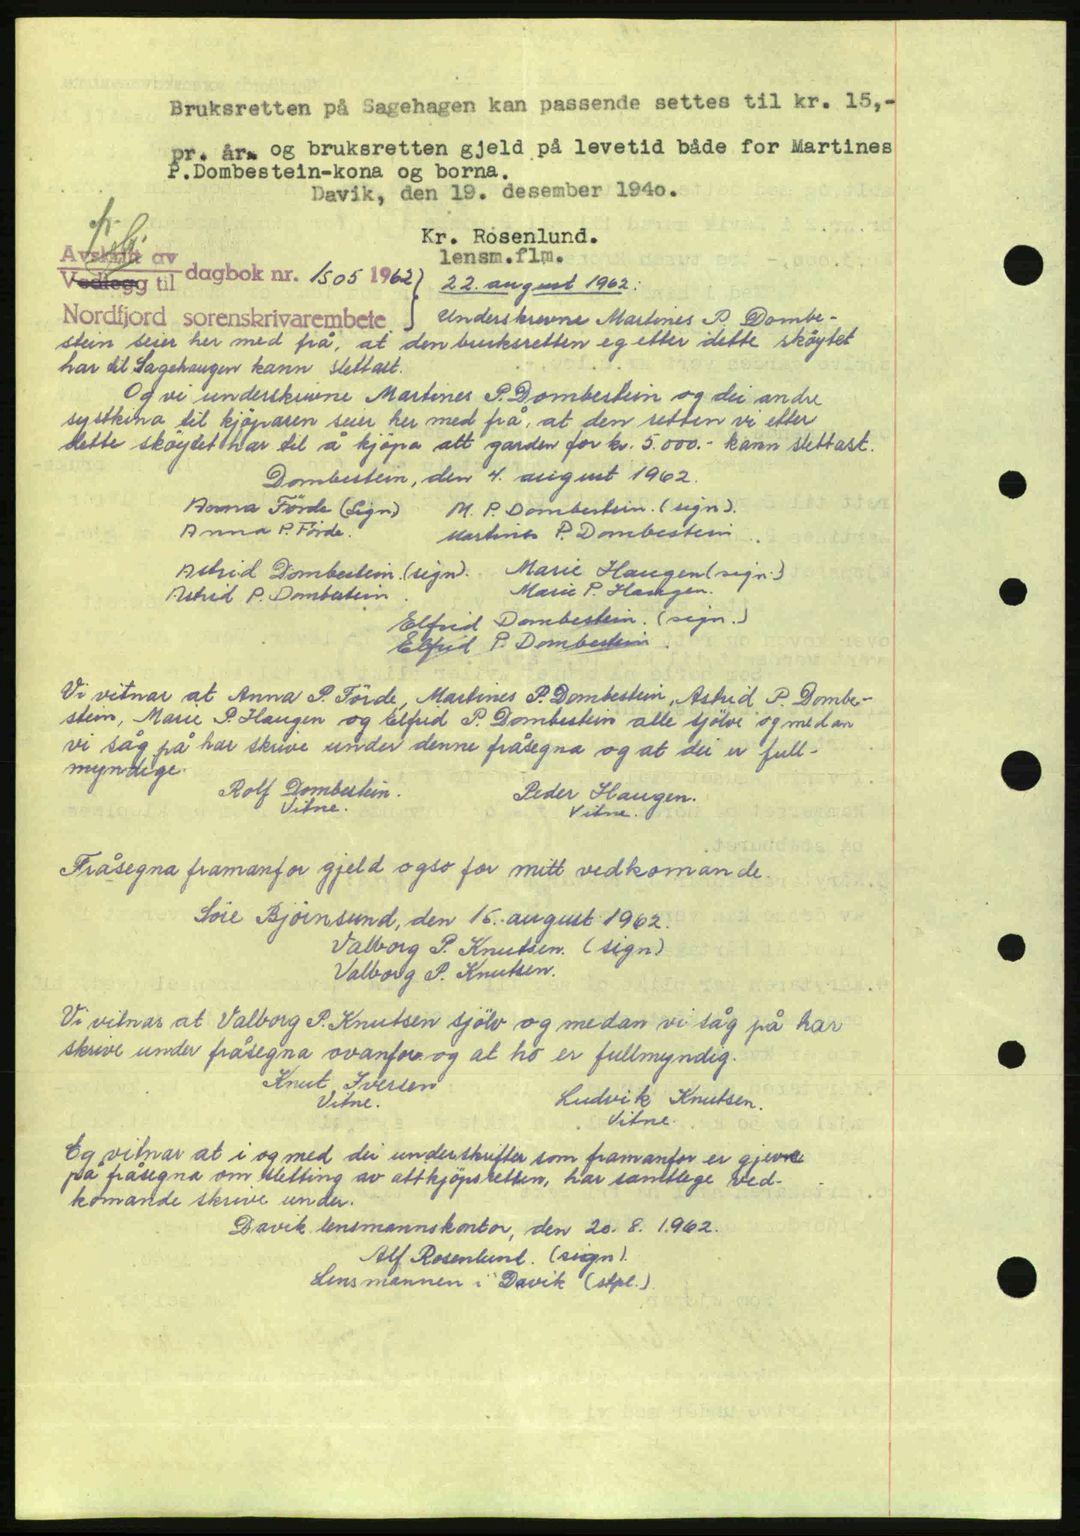 Bruksretten på Sagehagen kan passende settes til kr. 15,-
pr. år. og bruksretten gjeld på levetid både for Martines
P.Dombestein-kona og borna.
Davik, den 19. desember 1940.
Kr. Rosenlund.
lensm.flm.
Avskrift av
Vedlegg til dagbok nr. 1505 1962
Nordfjord sorenskrivarembete
22. august 1962:
Underskrivne Martines P. Dombe-
stein seier her med frå, at den bruksretten eg etter dette skøytet
har til Sagehaugen kann slettast.
Og vi underskrivne Martines P. Dombestein og dei andre
systkina til kjöparen seier her med frå, at den retten vi etter
dette sköytet har til å kjöpa att garden for kr. 5.000.- kann slettast.
Dombestein, den 4. august 1962.
Anna Förde (sign) M. P. Dombestein. (sign).
Anna P. Förde. Martines P. Dombestein
Astrid Dombestein. (sign). Marie Haugen (sign.)
Astrid P. Dombestein. Marie P. Haugen.
Elfrid Dombestein. (sign.)
Elfrid P. Dombestein.
Vi vitnar at Anna P. Förde, Martines P. Dombestein, Astrid P. Dombe-
stein, Marie P. Haugen og Elfrid P. Dombestein alle sjölve og medan
vi såg på har skrive under denne fråsegna og at dei er full-
myndige.
Rolf Dombestein. Peder Haugen.
Vitne. Vitne.
Fråsegna framanfor gjeld også for mitt vedkomande.
Søre Bjørnsund, den 15. august 1962.
Valborg P. Knutsen. (sign)
Valborg P. Knutsen.
Vi vitnar at Valborg P. Knutsen sjölv og medan vi såg på har
skrive under fråsegna ovanfor og at ho er fullmyndig.
Knut Iversen
Vitne. Ludvik Knutsen.
Vitne.
Eg vitnar at i og med dei underskrifter som framanfor er gjevne
på fråsegna om sletting av attkjöpsretten, har samtlege ved-
komande skrive under.
Davik lensmannskontor, den 20. 8. 1962.
Alf Rosenlund. (sign).
Lensmannen i Davik (stpl.)